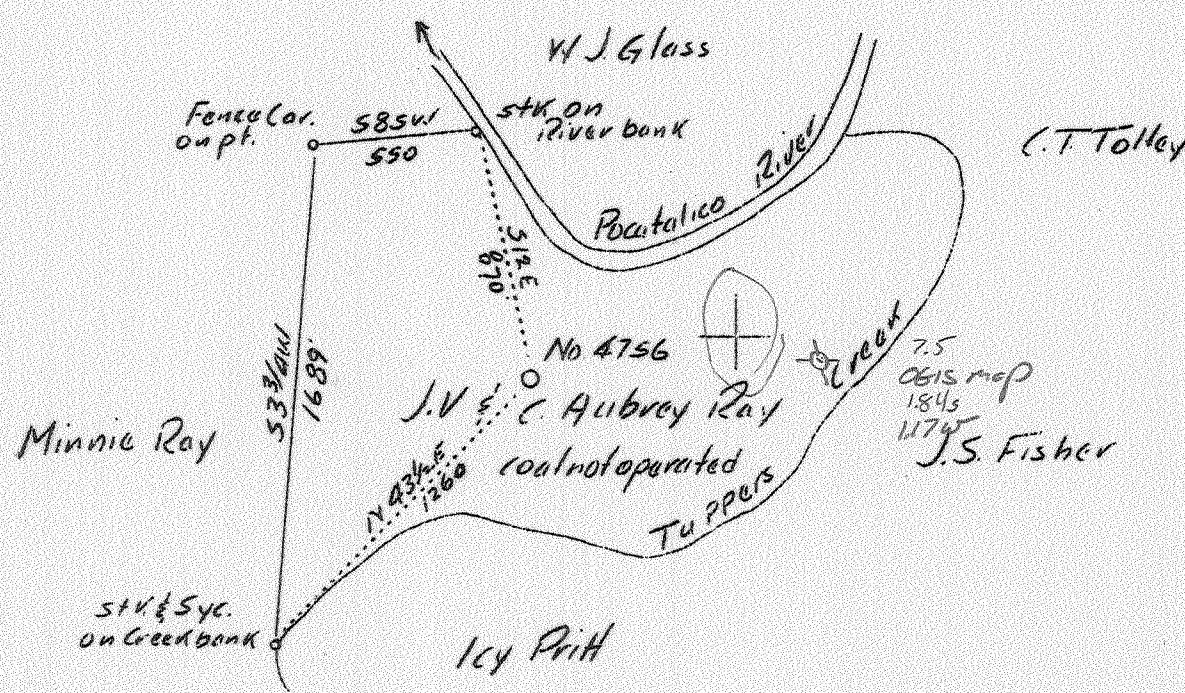 W J. Glass
Fence Cor.
on pt.
S85W
550
stk on
River bank
C. T Tolley
Pocatalico River
S12E
870
No 4756
J.V &
C. Aubrey Ray
coal not operated
Creek
7.5
OGIS map
1.84s
1.17w
J.S. Fisher
S3 3/4W
1689
Minnie Ray
N 43 1/2 E
1260
Tuppers
stk & Syc.
on Creek bank
Icy Pritt